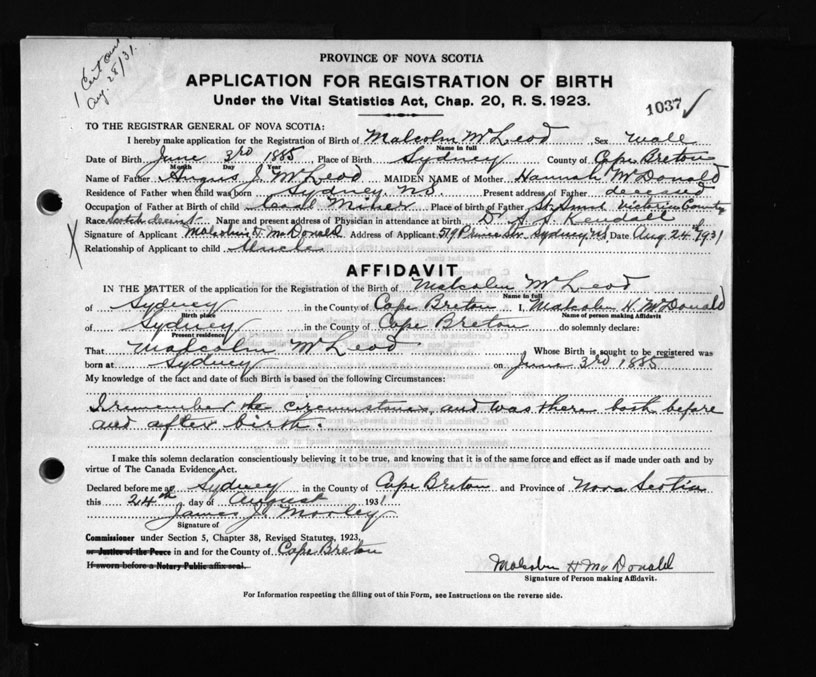 1 Cert
Aug. 28/31.
PROVINCE OF NOVA SCOTIA
APPLICATION FOR REGISTRATION OF BIRTH
Under the Vital Statistics Act, Chap. 20, R. S. 1923.
1037 ✓
TO THE REGISTRAR GENERAL OF NOVA SCOTIA:
I hereby make application for the Registration of Birth of Malcolm McLeod Sex Male
Name in full
Date of Birth June 3rd 1885 Place of Birth Sydney County of Cape Breton
Month Day Year
Name of Father Angus J. McLeod MAIDEN NAME of Mother Hannah McDonald
Residence of Father when child was born Sydney, N.S. Present address of Father deceased
Occupation of Father at Birth of Child Miner Place of birth of Father Victoria County
Race Scotch descent Name and present address of Physician in attendance at birth Dr Kendall
X Signature of Applicant Malcolm H McDonald Address of Applicant 519 Prince St. Sydney NS Date Aug 24th 1931
Relationship of Applicant to child Uncle
AFFIDAVIT
IN THE MATTER of the application for the Registration of the Birth of Malcolm McLeod
Name in full
of Sydney in the County of Cape Breton I, Malcolm H. McDonald
Birth place Name of person making Affidavit
of Sydney in the County of Cape Breton do solemnly declare:
Present residence
That Malcolm McLeod Whose Birth is sought to be registered was
born at Sydney on June 3rd 1885
My knowledge of the fact and date of such Birth is based on the following Circumstances:
I remember the circumstances, and was there both before
and after birth.
I make this solemn declaration conscientiously believing it to be true, and knowing that it is of the same force and effect as if made under oath and by
virtue of The Canada Evidence Act.
Declared before me at Sydney in the County of Cape Breton and Province of Nova Scotia
this 24th day of August 1931
James J. Morley
Signature of
Commissioner under Section 5, Chapter 38, Revised Statutes, 1923,
or Justice of the Peace in and for the County of Cape Breton
If sworn before a Notary Public affix seal.
Malcolm H McDonald
Signature of Person making Affidavit.
For Information respecting the filling out of this Form, see Instructions on the reverse side.